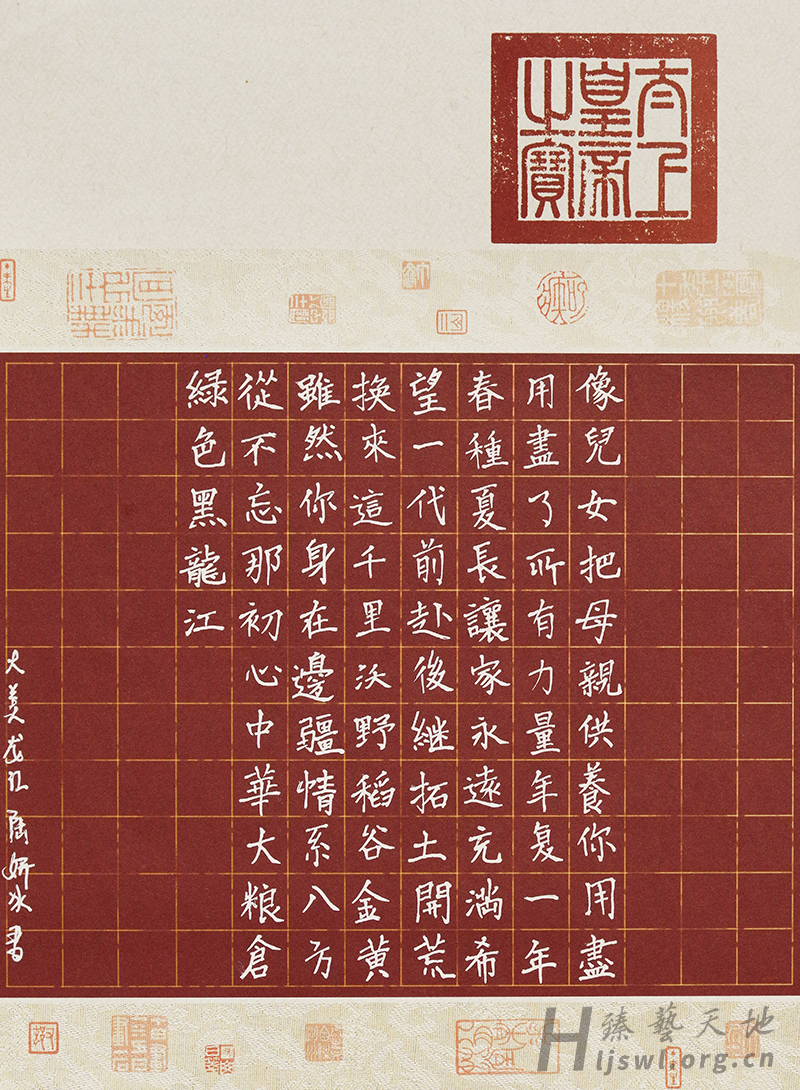 太上
皇帝
之寶
像兒女把母親供養你用盡
用盡了所有力量年复一年
春種夏長讓家永遠充满希
望一代前赴後継拓土開荒
換來這千里沃野稻谷金黄
雖然你身在邊疆情系八方
從不忘那初心中華大粮倉
緑色黑龍江
大美龙江 屈妍冰書
臻藝天地
Hljswl.org.cn